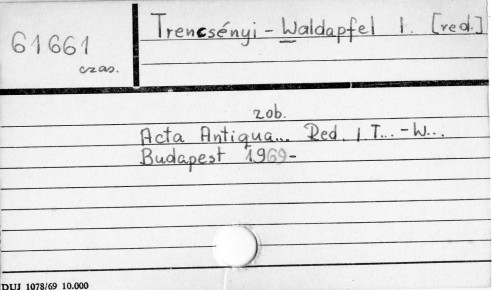 61661
czas.
Trencsényi - Waldapfel I. [red.]
zob.
Acta Antiqua... Red. I. T... - W...
Budapest 1969-
DUJ 1078/69 10.000